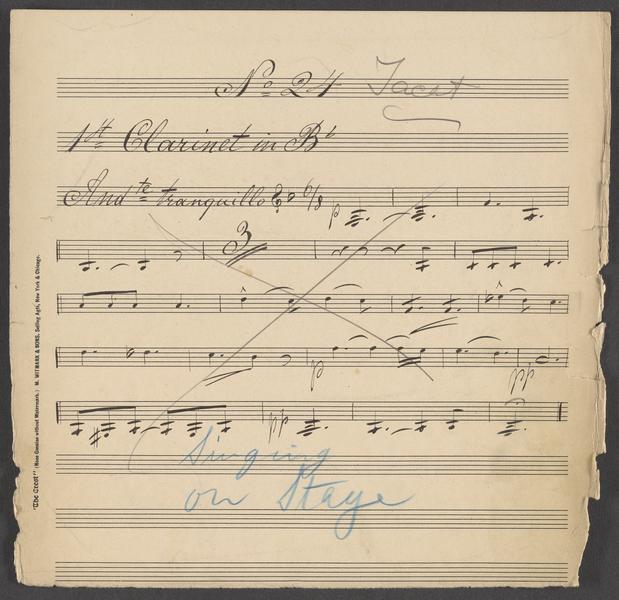 No 24 Tacet
1st Clarinet in B♭
Andte tranquillo 6/8 p
3
p pp
pp
Singing
on Stage
"The Crest" (None Genuine without Watermark.) M. WITMARK & SONS, Selling Agts, New York & Chicago.